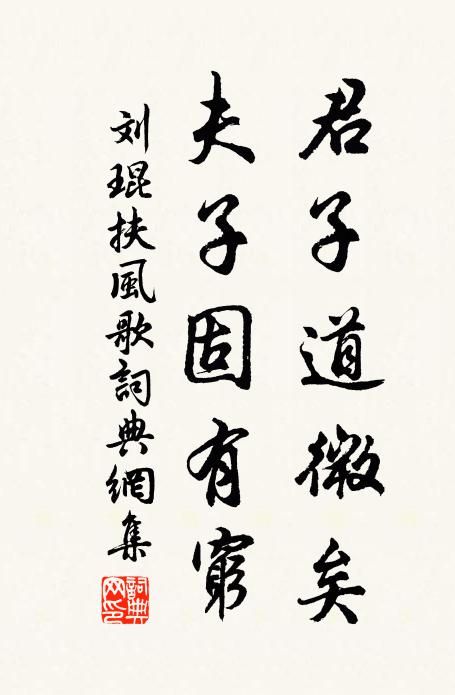 君子道微矣
夫子固有窮
刘琨扶風歌詞典網集
詞典
网印